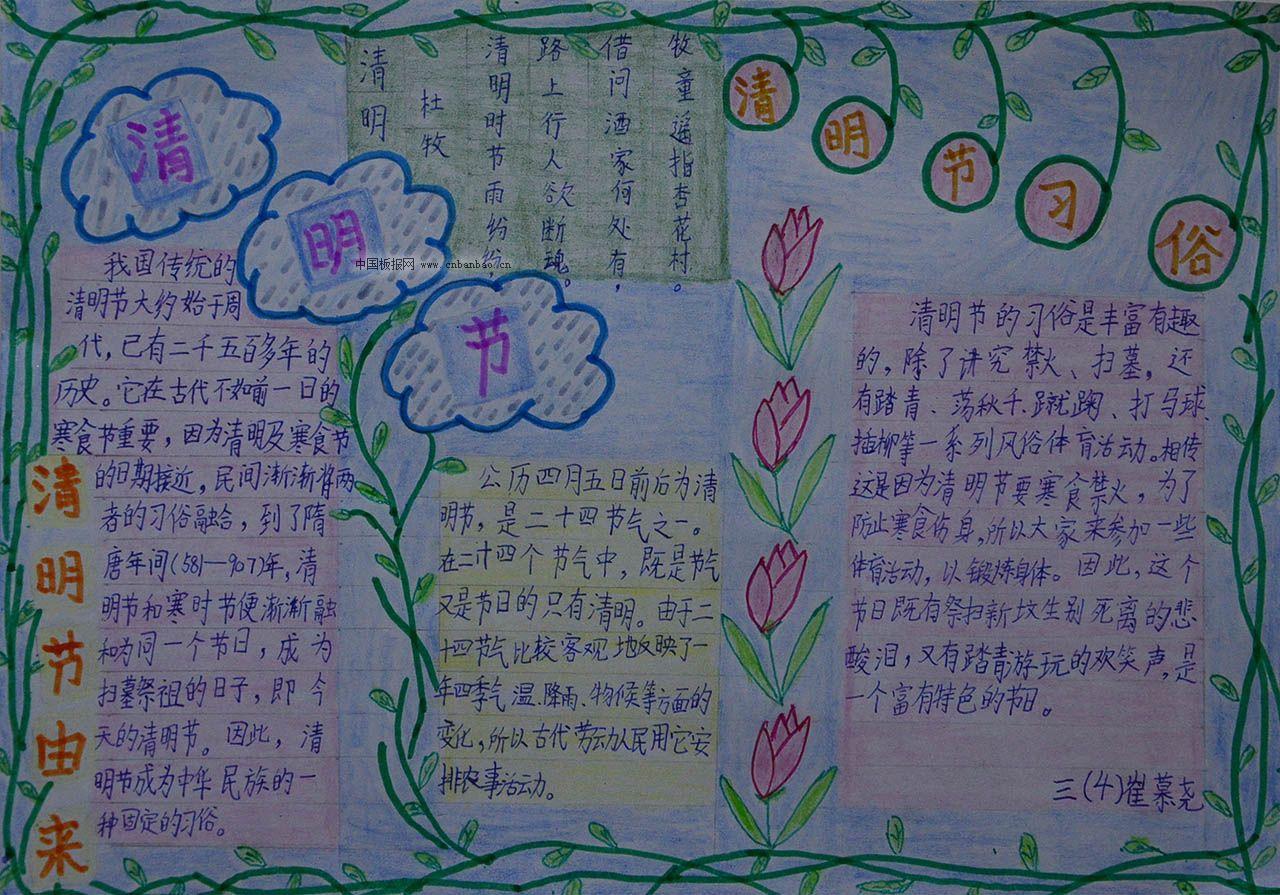 清
明
节
清明
杜牧
清明时节雨纷纷，
路上行人欲断魂。
借问酒家何处有，
牧童遥指杏花村。
清明节习俗
中国板报网 www.cnbanbao.cn
清明节由来
我国传统的
清明节大约始于周
代，已有二千五百多年的
历史。它在古代不如前一日的
寒食节重要，因为清明及寒食节
的日期接近，民间渐渐将两
者的习俗融合，到了隋
唐年间(581—907)年，清
明节和寒时节便渐渐融
和为同一个节日，成为
扫墓祭祖的日子，即今
天的清明节。因此，清
明节成为中华民族的一
种固定的习俗。
公历四月五日前后为清
明节，是二十四节气之一。
在二十四个节气中，既是节气
又是节日的只有清明。由于二
十四节气比较客观地反映了一
年四季气温、降雨、物候等方面的
变化，所以古代劳动人民用它安
排农事活动。
清明节的习俗是丰富有趣
的，除了讲究禁火、扫墓，还
有踏青、荡秋千、蹴鞠、打马球、
插柳等一系列风俗体育活动。相传
这是因为清明节要寒食禁火，为了
防止寒食伤身，所以大家来参加一些
体育活动，以锻炼身体。因此，这个
节日既有祭扫新坟生别死离的悲
酸泪，又有踏青游玩的欢笑声，是
一个富有特色的节日。
三(4)崔慕尧